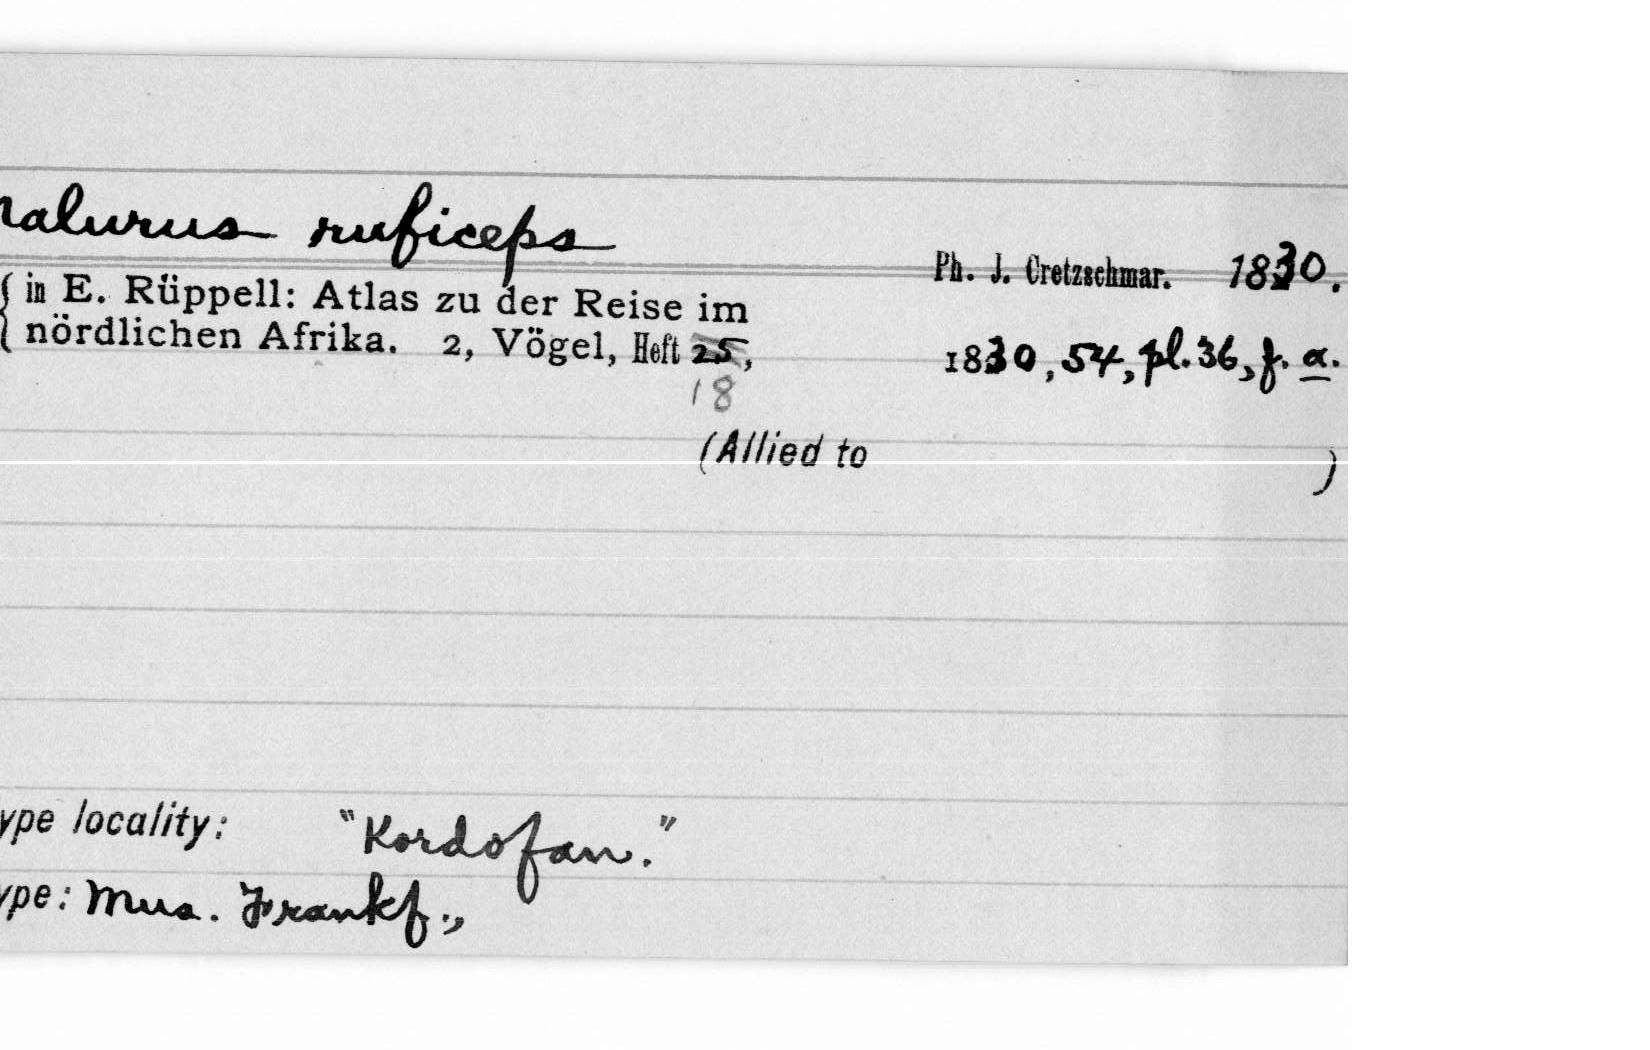 malurus ruficeps
Ph. J. Cretzschmar. 1830.
in E. Rüppell: Atlas zu der Reise im
nördlichen Afrika. 2, Vögel, Heft 25, 1830, 54, pl. 36, f. a.
18
(Allied to )
ype locality: "Kordofan."
ype: Mus. Frankf.,